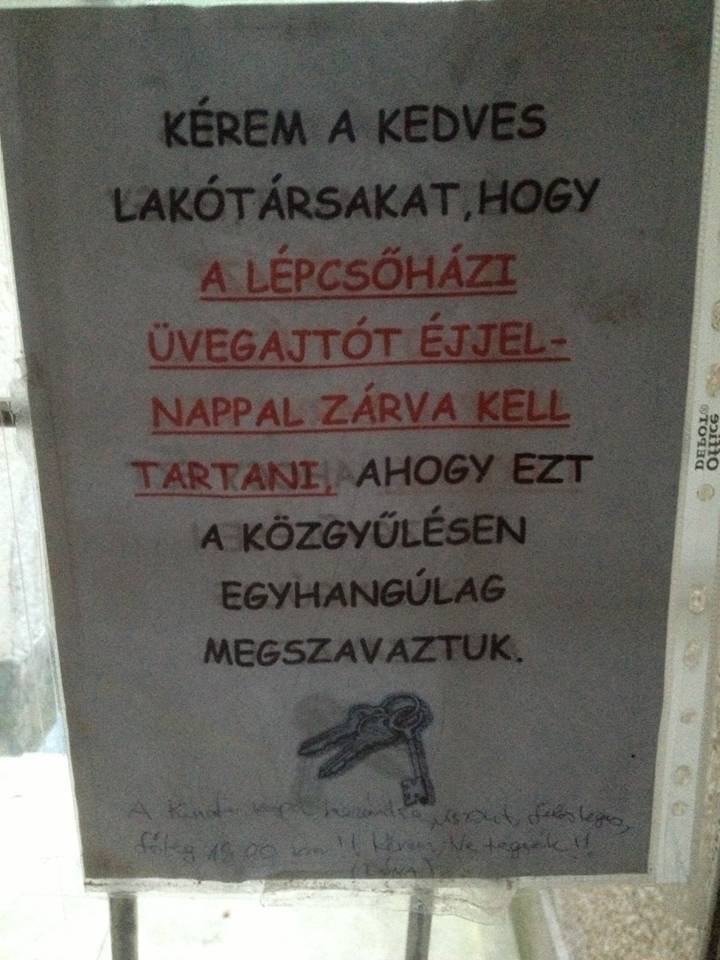 KÉREM A KEDVES
LAKÓTÁRSAKAT, HOGY
A LÉPCSŐHÁZI
ÜVEGAJTÓT ÉJJEL-
NAPPAL ZÁRVA KELL
TARTANI, AHOGY EZT
A KÖZGYŰLÉSEN
EGYHANGÚLAG
MEGSZAVAZTUK.
A felesleges,
főleg !! Kérem, Ne tegyék!!
Office